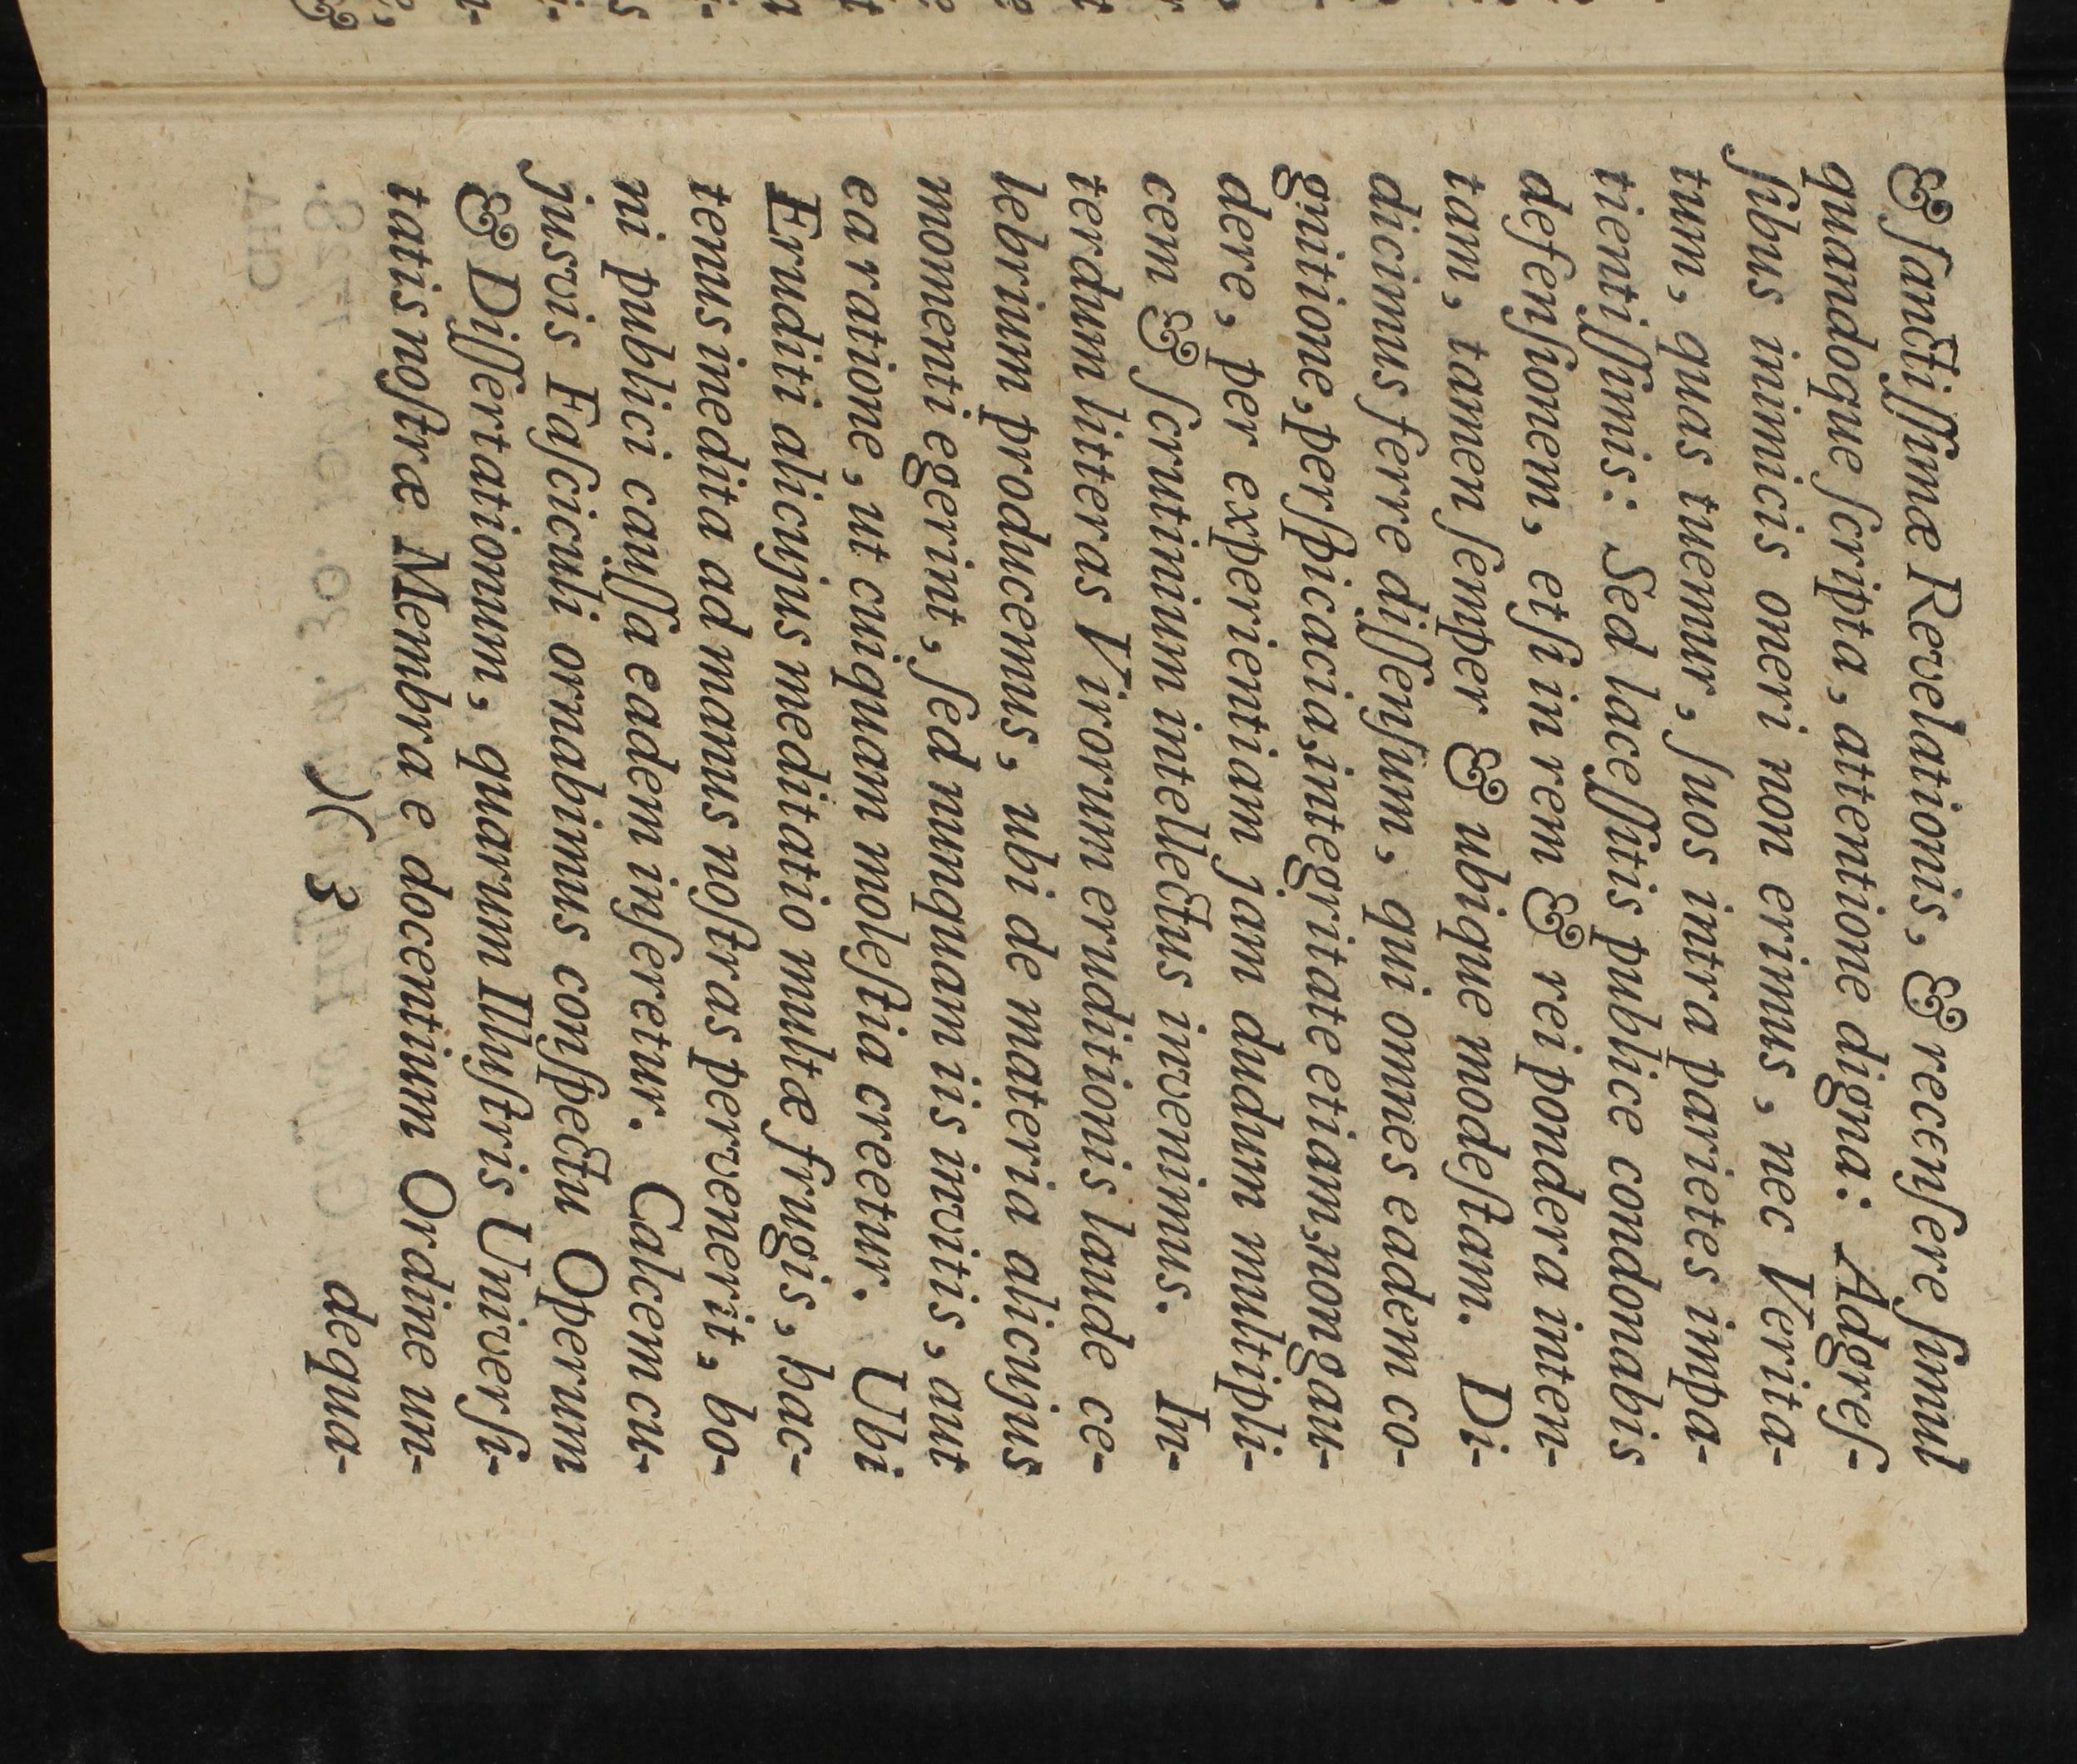 & ſanctiſſimæ Revelationis, & recenſere ſimul
quandoque ſcripta, attentione digna: Adgreſ-
ſibus inimicis oneri non erimus, nec Verita-
tum, quas tuemur, ſuos intra parietes impa-
tientiſſimis: Sed laceſſitis publice condonabis
defenſionem, etſi in rem & rei pondera inten-
tam, tamen ſemper & ubique modeſtam. Di-
dicimus ferre diſſenſum, qui omnes eadem co-
gnitione, perſpicacia, integritate etiam, non gau-
dere, per experientiam jam dudum multipli-
cem & ſcrutinium intellectus invenimus. In-
terdum litteras Virorum eruditionis laude ce-
lebrium producemus, ubi de materia alicujus
momenti egerint, ſed nunquam iis invitis, aut
ea ratione, ut cuiquam moleſtia creetur. Ubi
Eruditi alicujus meditatio multæ frugis, hac-
tenus inedita ad manus noſtras pervenerit, bo-
ni publici cauſſa eadem inſeretur. Calcem cu-
jusvis Faſciculi ornabimus conſpectu Operum
& Diſſertationum, quarum Illuſtris Univerſi-
tatis noſtræ Membra e docentium Ordine un-
)( 3 dequa-